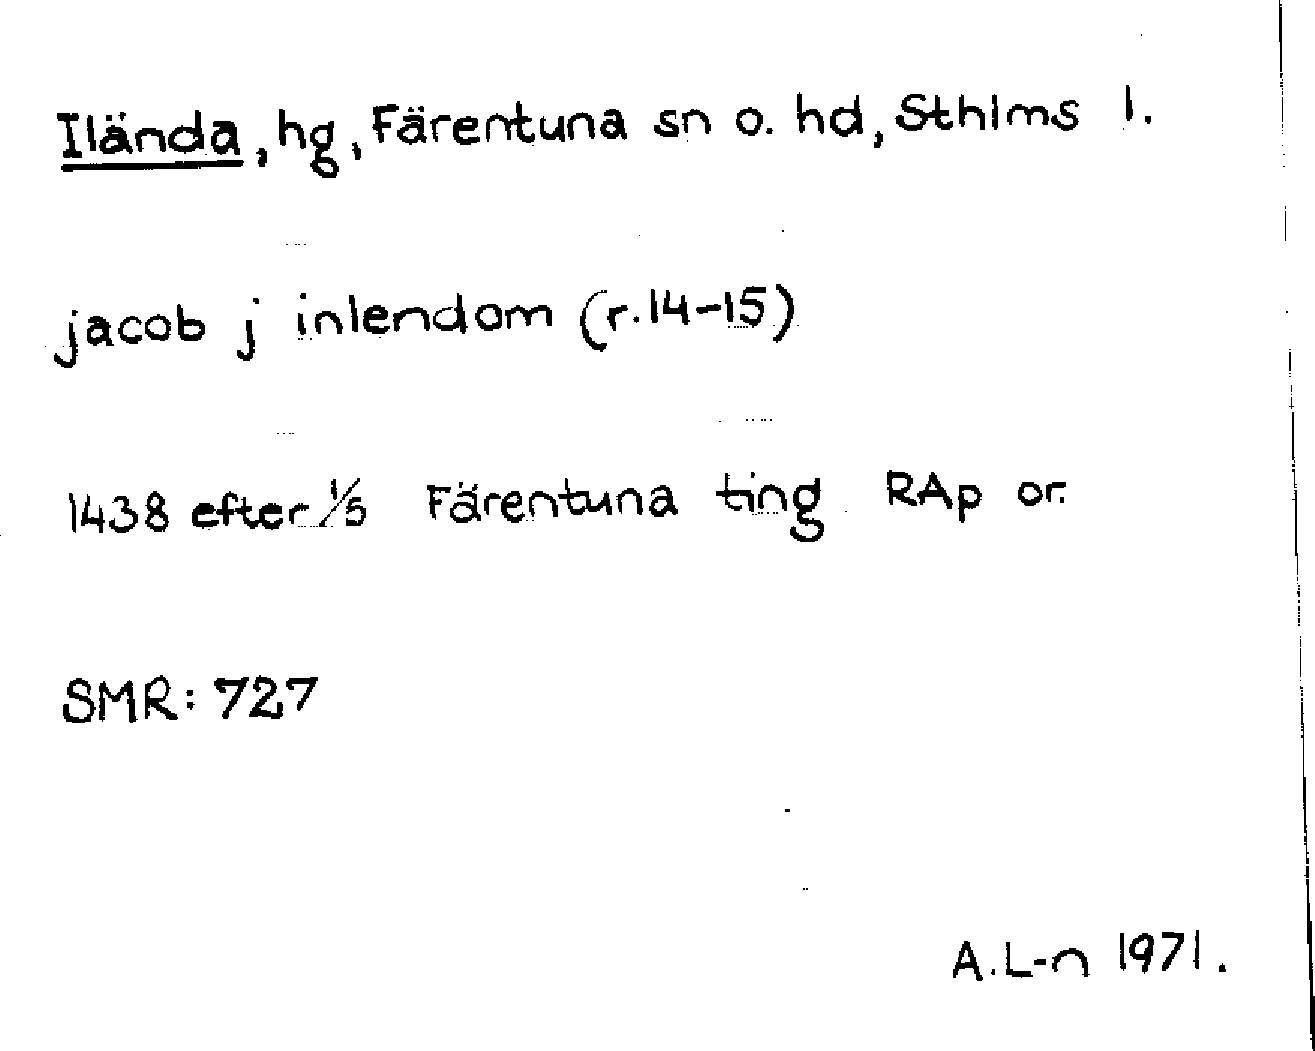 Ilända, hg, Färentuna sn o. hd, Sthlms l.
jacob j inlendom (r.14-15)
1438 efter 1/5 Färentuna ting RAp or.
SMR: 727
A.L-n 1971.